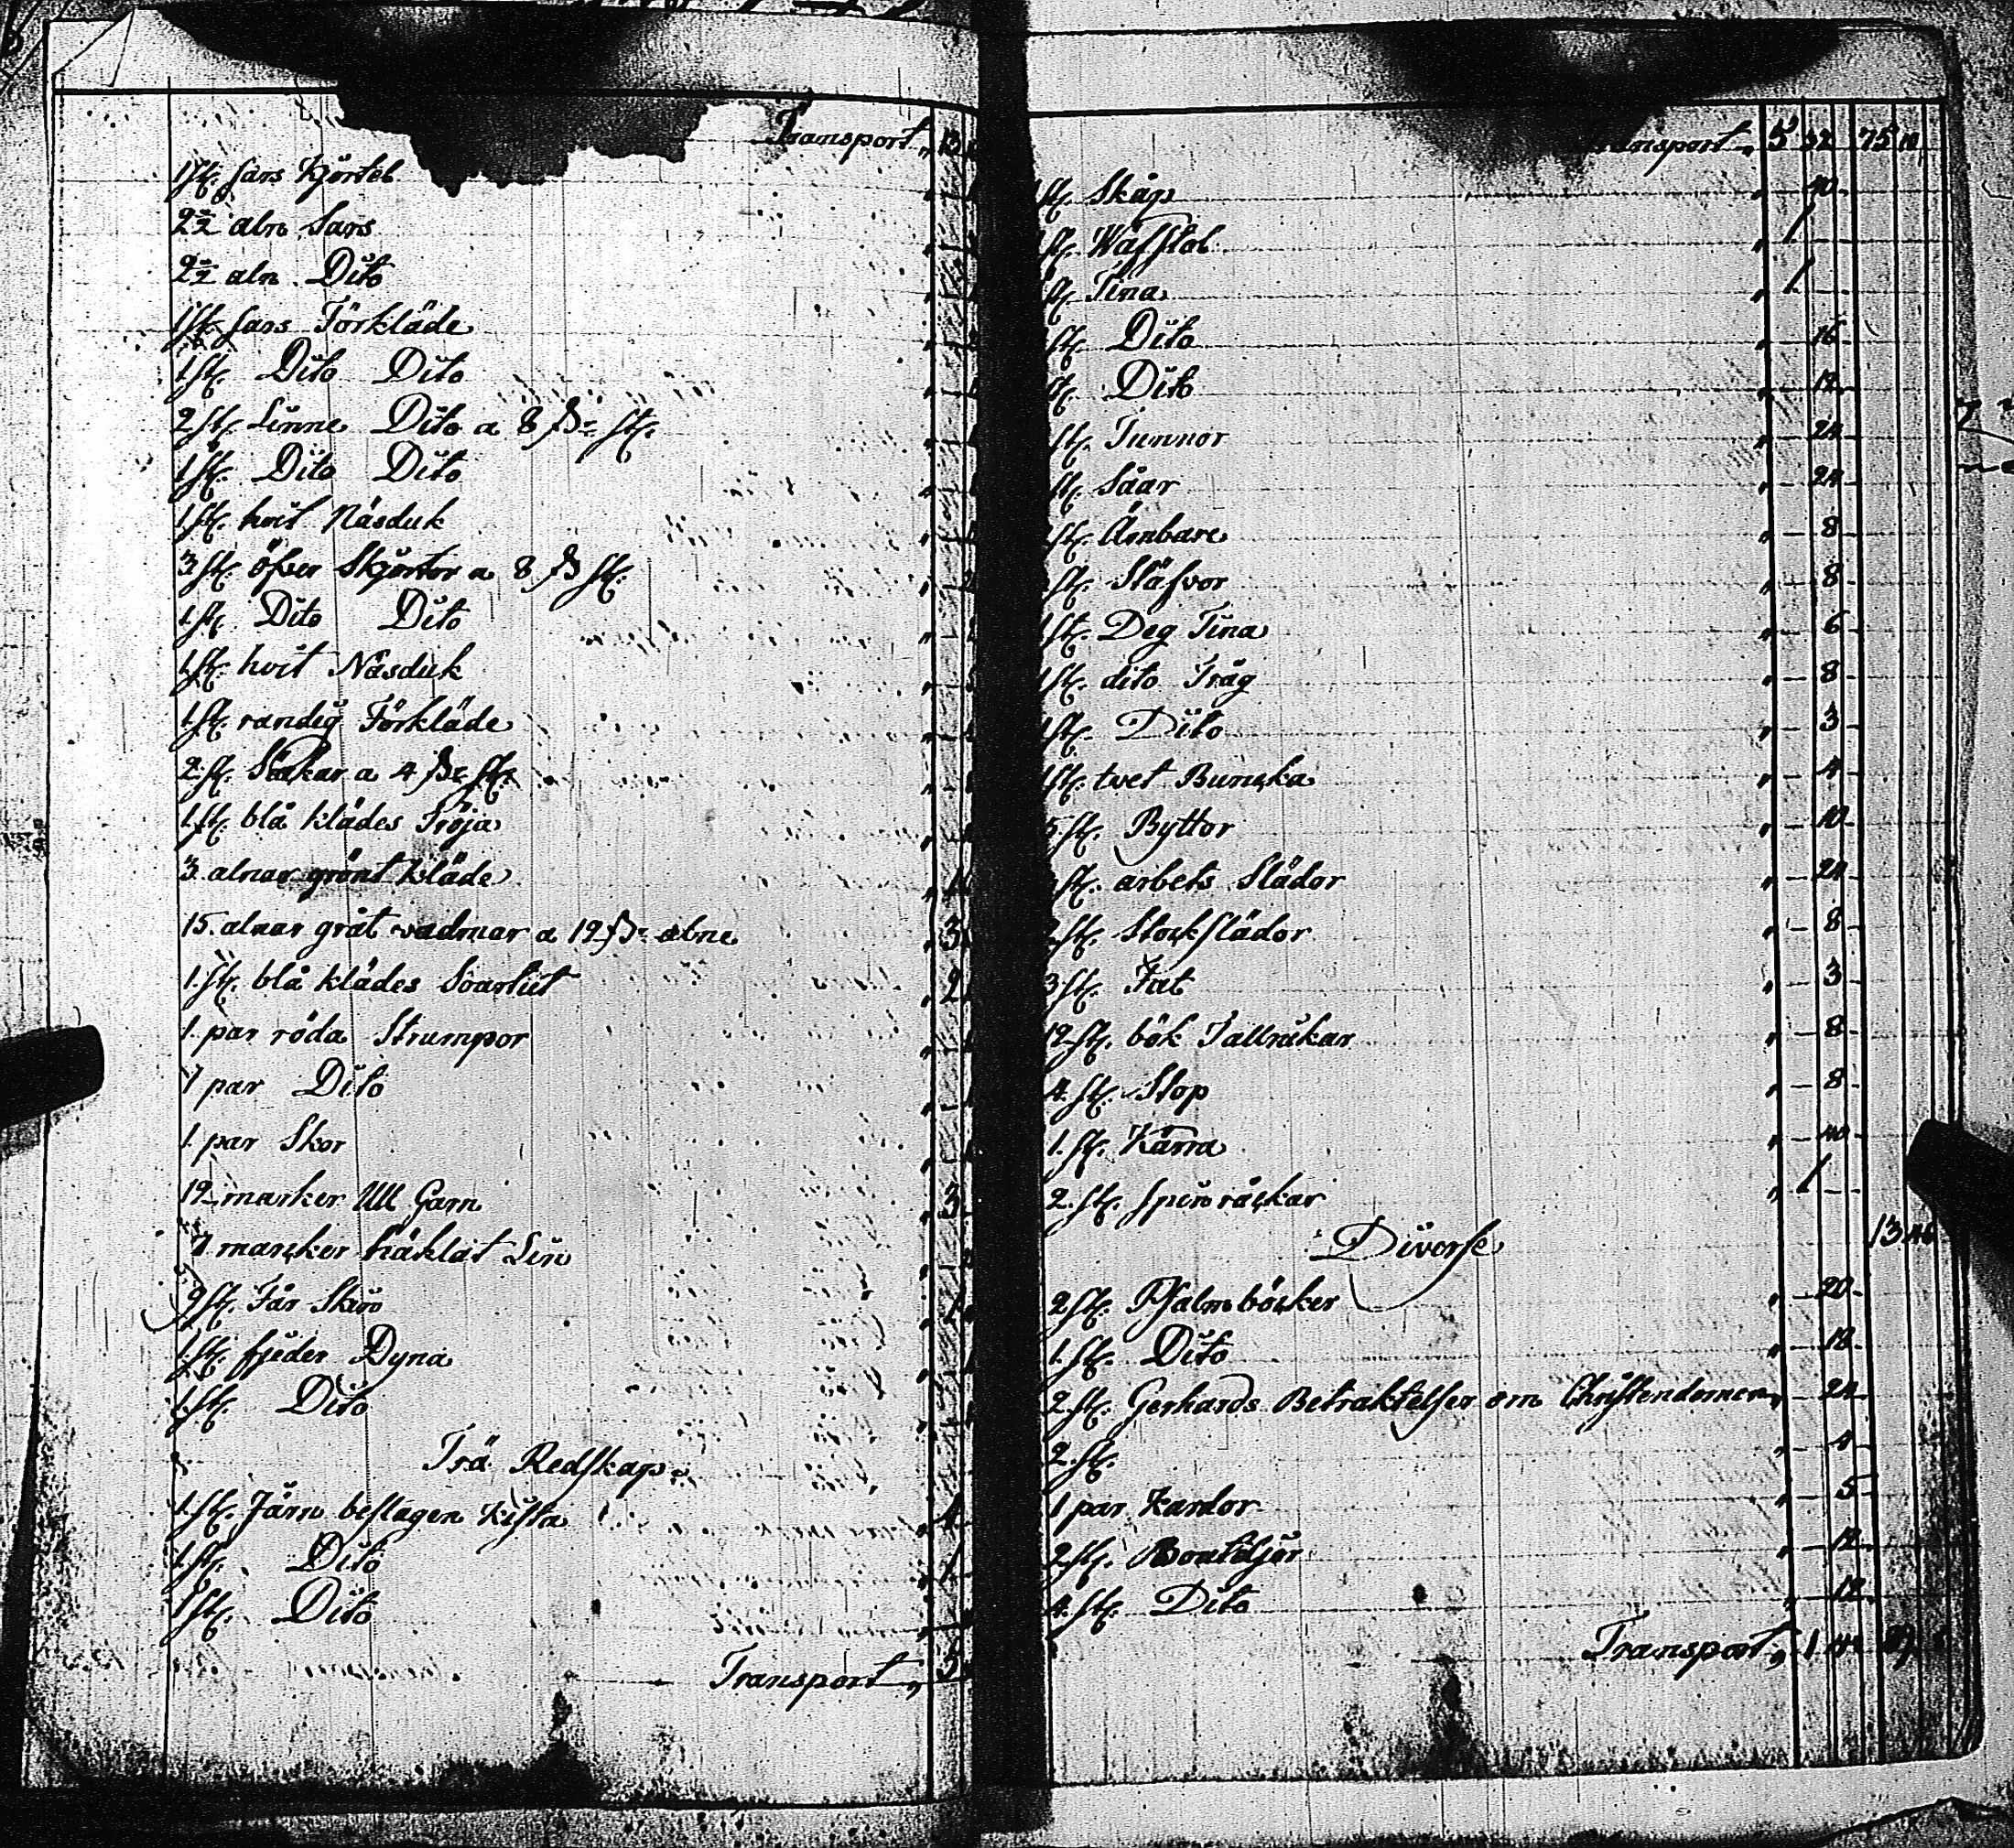 Transport „ 13
1 St. sars Kjörtel
2½ aln Sars
2½ aln Dito
1 St. sars Förkläde
1 St. Dito Dito
2 St. Linne Dito a 8 ß St.
1 St. Dito Dito
1 St. hvit Näsduk
3 St. öfver Skjörtor a 8 ß St.
1 St. Dito Dito
1 St. hvit Näsduk
1 St. randig Förkläde
2 St. Lakar a 4 ß St.
1 St. blå klädes Tröja
3 alnar grönt kläde
15. alnar gråt vadmar a 12 ß alne „ 3
1. St. blå klädes „ 2
1. par röda Strumpor
7 par Dito
1. par Skor
12 marker Ull Garn „ 3
7 marcker häklat Lin
9 St. Får Skin „ 1
1 St. fjeder Dyna
1 St. Dito
Trä Redskap
1. St. Järn beslagen Kista
1 St. Dito „ 1
1 St. Dito
Transport „ 5
Transport „ 5 32 75 10
St. Skåp „ 40
St. Wäfstol „ 1
St. Tina „ 1
St. Dito „ 16
St. Dito „ 12
St. Tunnor „ 24
St. Såar „ 24
St. Ämbare „ 8
St. Stäfvor „ 8
1 St. Deg Tina „ 6
1 St. dito Tråg „ 8
1 St. Dito „ 3
1 St. tvet Buncka „ 4
5 St. Byttor „ 10
St. arbets Slädor „ 24
2 St. Stockslädor „ 8
3 St. Fat „ 3
12 St. bök Tallrickar „ 8
4. St. Stop „ 8
1. St. Kärra „ 40
2. St. spinråckar „ 1
Diverse 13 46
2 St. Psalmböcker „ 20
1. St. Dito „ 12
2. St. Gerhards Betraktelser om Christendomen „ 24
2. St. „ 4
1 par Kardor „ 5
2 St. Bouteljer „ 12
4. St. Dito „ 12
Transport „ 1